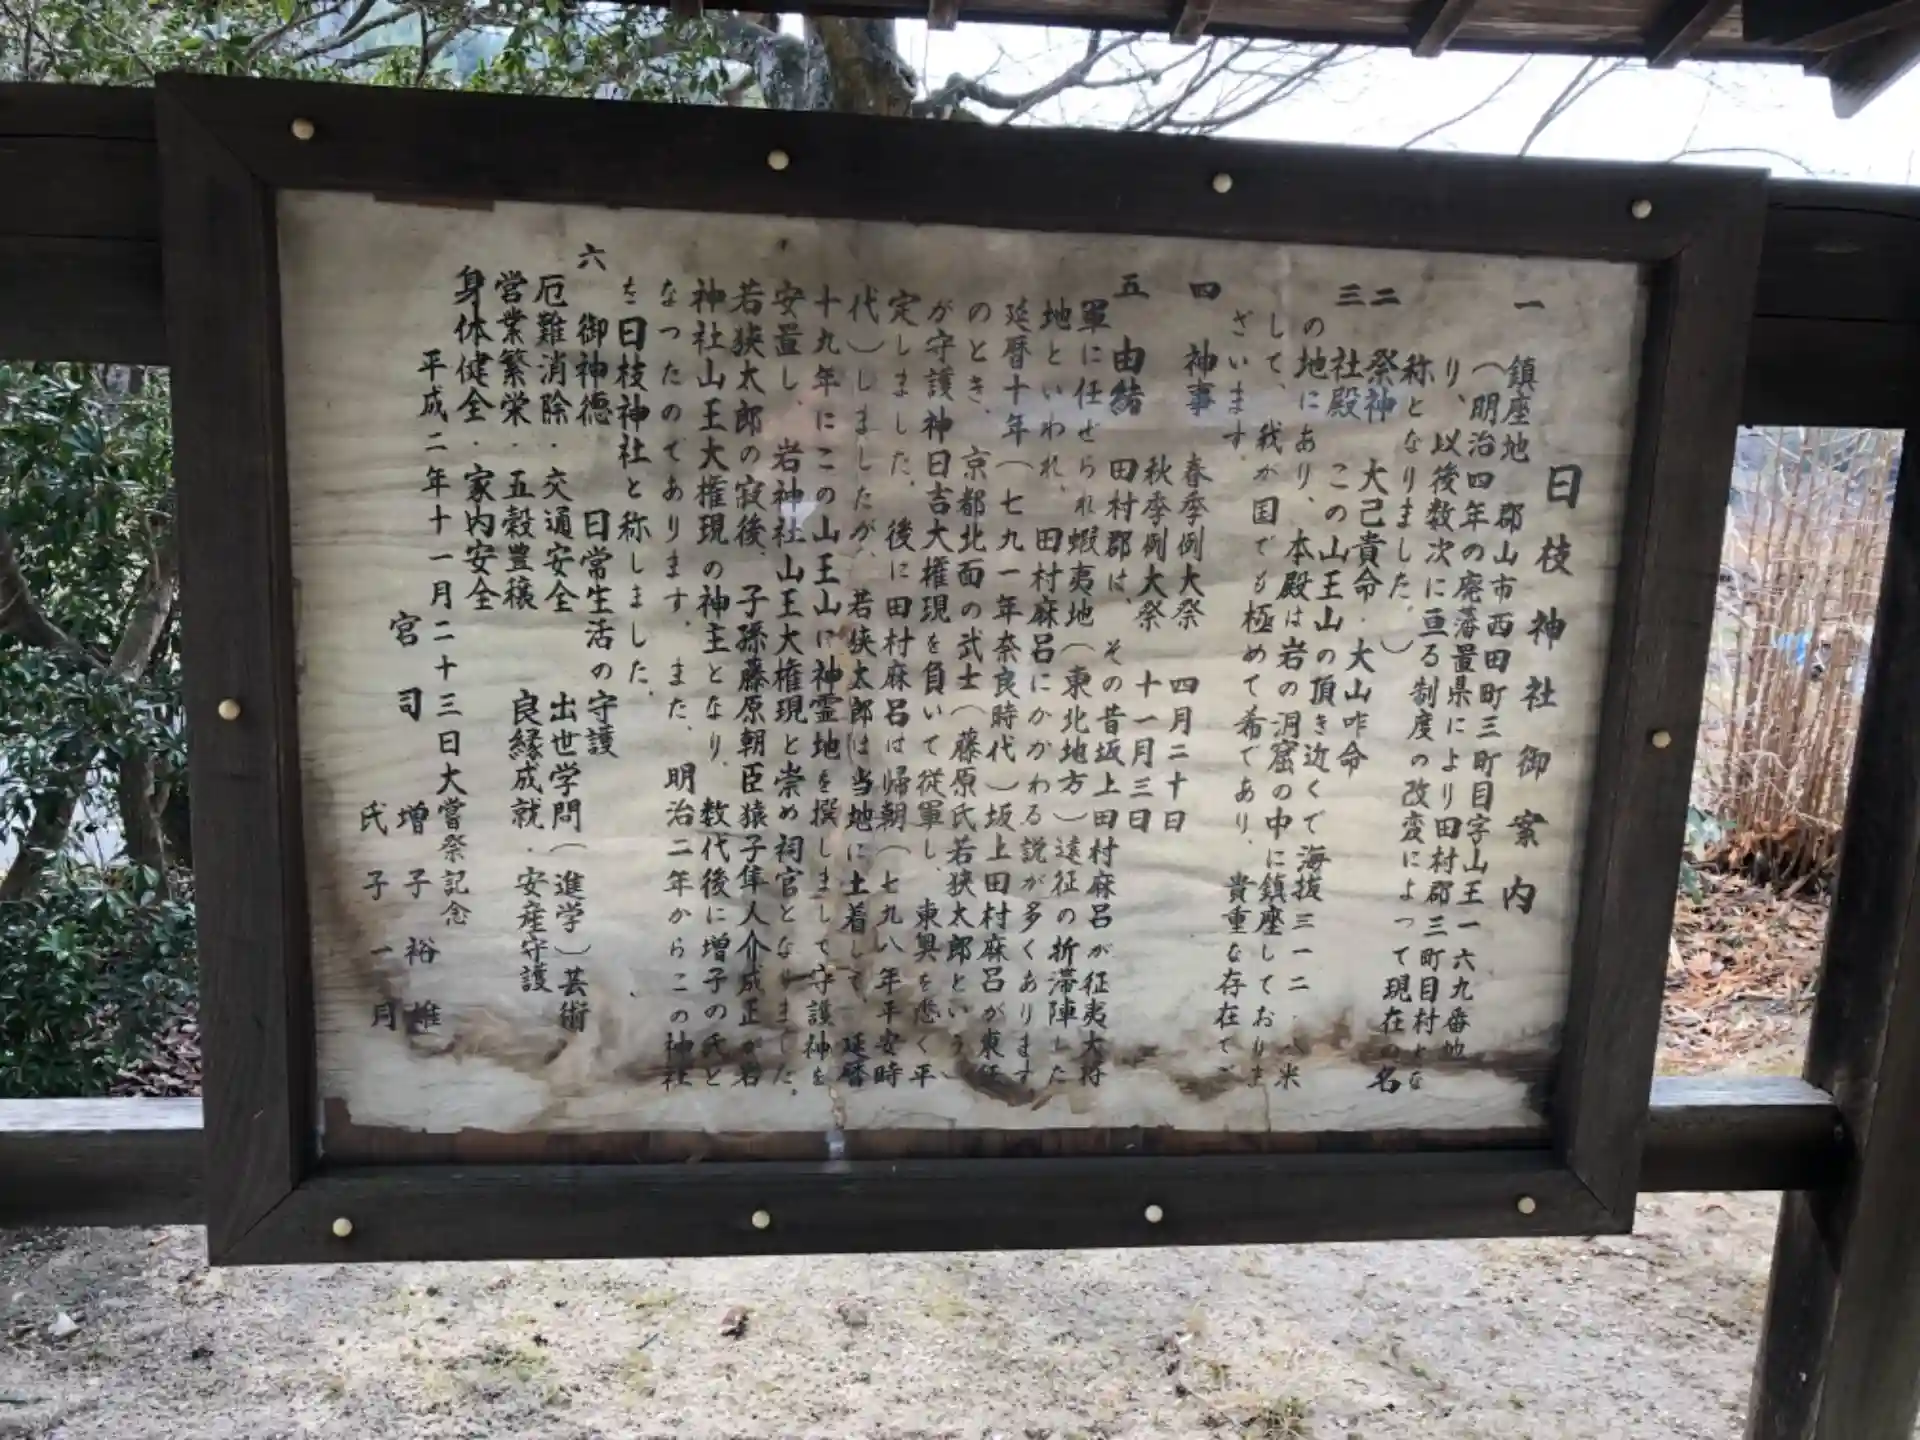 日枝神社御案内
一 鎮座地 郡山市西田町三町目字山王一六九番地
(明治四年の廃藩置県により田村郡三町目村とな
り、以後数次に亘る制度の改変によって現在の名
称となりました。)
二 祭神 大己貴命・大山咋命
三 社殿 この山王山の頂き近くで海抜三一二・八米
の地にあり、本殿は岩の洞窟の中に鎮座しておりま
して、我が国でも極めて希であり、貴重な存在でご
ざいます。
四 神事 春季例大祭 四月二十日
秋季例大祭 十一月三日
五 由緒 田村郡は、その昔坂上田村麻呂が征夷大将
軍に任ぜられ蝦夷地(東北地方)遠征の折滞陣した
地といわれ、田村麻呂にかかわる説が多くあります
延暦十年(七九一年奈良時代)坂上田村麻呂が東征
のとき、京都北面の武士(藤原氏若狭太郎という)
が守護神日吉大権現を負いて従軍し、東奥を悉く平
定しました。後に田村麻呂は帰朝(七九八年平安時
代)しましたが、若狭太郎は当地に土着して、延暦
十九年にこの山王山に神霊地を撰しまして守護神を
安置し、岩神社山王大権現と崇め祠官となりました。
若狭太郎の寂後、子孫藤原朝臣猿子隼人介成正が岩
神社山王大権現の神主となり、数代後に増子の氏と
なったのであります。また、明治二年からこの神社
を日枝神社と称しました。
六 御神徳 日常生活の守護
厄難消除・交通安全 出世学問(進学)芸術
営業繁栄・五穀豊穣 良縁成就・安産守護
身体健全・家内安全
平成二年十一月二十三日大嘗祭記念
宮司 増子裕雄
氏子一同